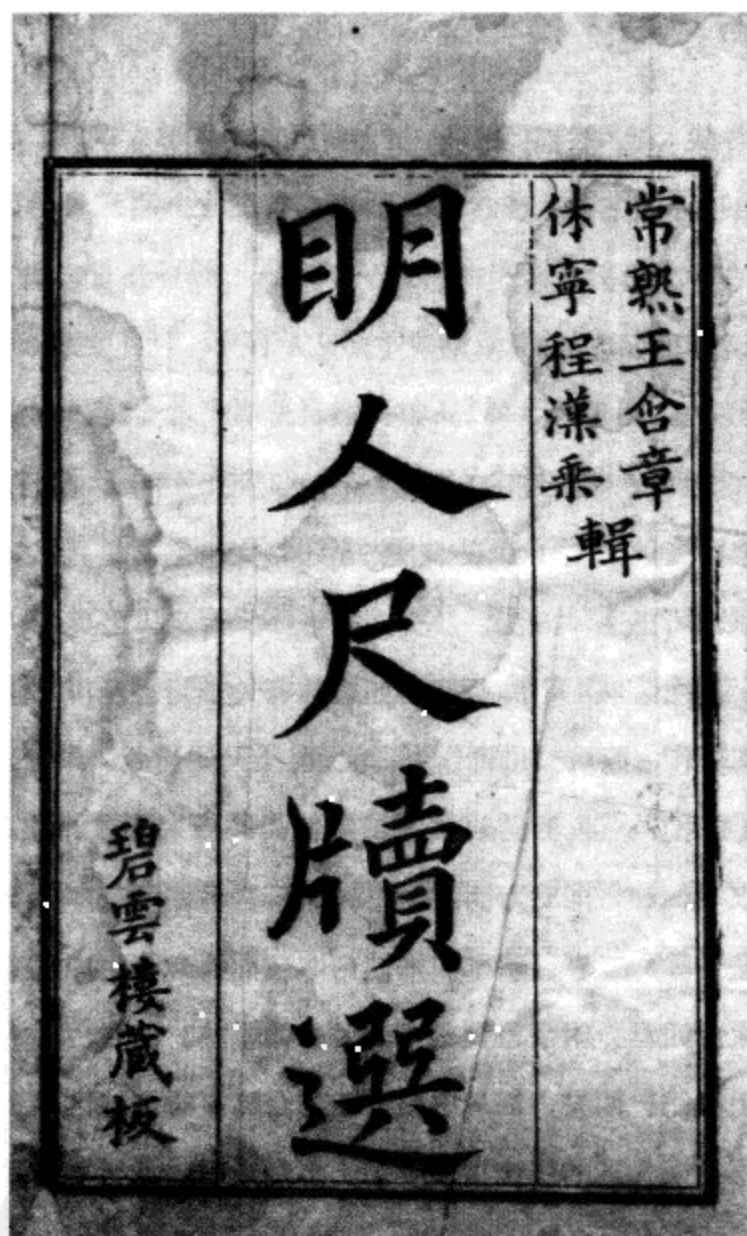 常熟王含章
休寧程漢乘
輯
明人尺牘選
碧雲樓藏板